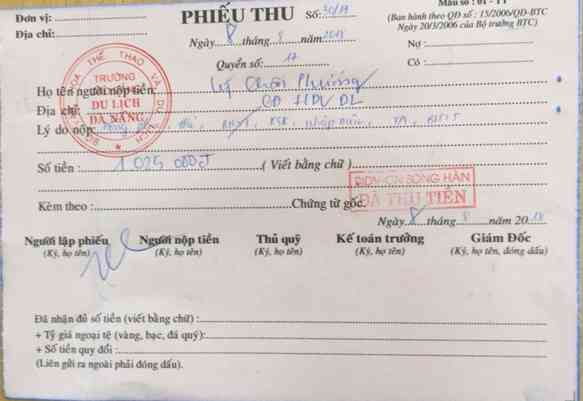 Đơn vị:
PHIẾU THU
Số: 30/19
Mẫu số : 01 - TT
(Ban hành theo QĐ số : 15/2006/QĐ-BTC
Ngày 20/3/2006 của Bộ trưởng BTC)
Địa chỉ:
Ngày 8 tháng 8 năm 2019
Nợ :
Quyển số: 17
Có :
THỂ THAO VÀ DU LỊCH
TRƯỜNG
DU LỊCH
ĐÀ NẴNG
Họ tên người nộp tiền: Phương
Địa chỉ: CĐ HDV DL
Lý do nộp: thẻ, BHYT, KSK, nhập
Số tiền : 1.025 000đ ( Viết bằng chữ )
BIDV-CN SÔNG HÀN
ĐÃ THU TIỀN
Kèm theo : Chứng từ gốc
Ngày 8 tháng 8 năm 20
Người lập phiếu Người nộp tiền Thủ quỹ Kế toán trưởng Giám Đốc
(Ký, họ tên) (Ký, họ tên) (Ký, họ tên) (Ký, họ tên) (Ký, họ tên, đóng dấu)
Đã nhận đủ số tiền (viết bằng chữ) :
+ Tỷ giá ngoại tệ (vàng, bạc, đá quý):
+ Số tiền quy đổi :
(Liên gửi ra ngoài phải đóng dấu).